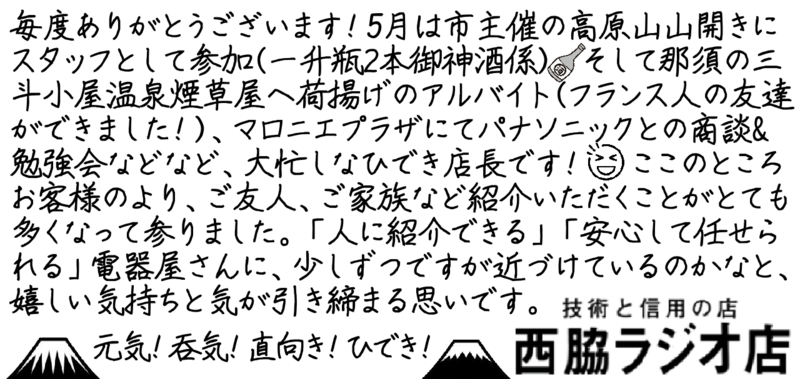 毎度ありがとうございます!5月は市主催の高原山山開きに
スタッフとして参加(一升瓶2本御神酒係)そして那須の三
斗小屋温泉煙草屋へ荷揚げのアルバイト(フランス人の友達
ができました!)、マロニエプラザにてパナソニックとの商談&
勉強会などなど、大忙しなひでき店長です!ここのところ
お客様のより、ご友人、ご家族など紹介いただくことがとても
多くなって参りました。「人に紹介できる」「安心して任せら
れる」電器屋さんに、少しずつですが近づけているのかなと、
嬉しい気持ちと気が引き締まる思いです。
技術と信用の店
元気!呑気!直向き!ひでき!
西脇ラジオ店